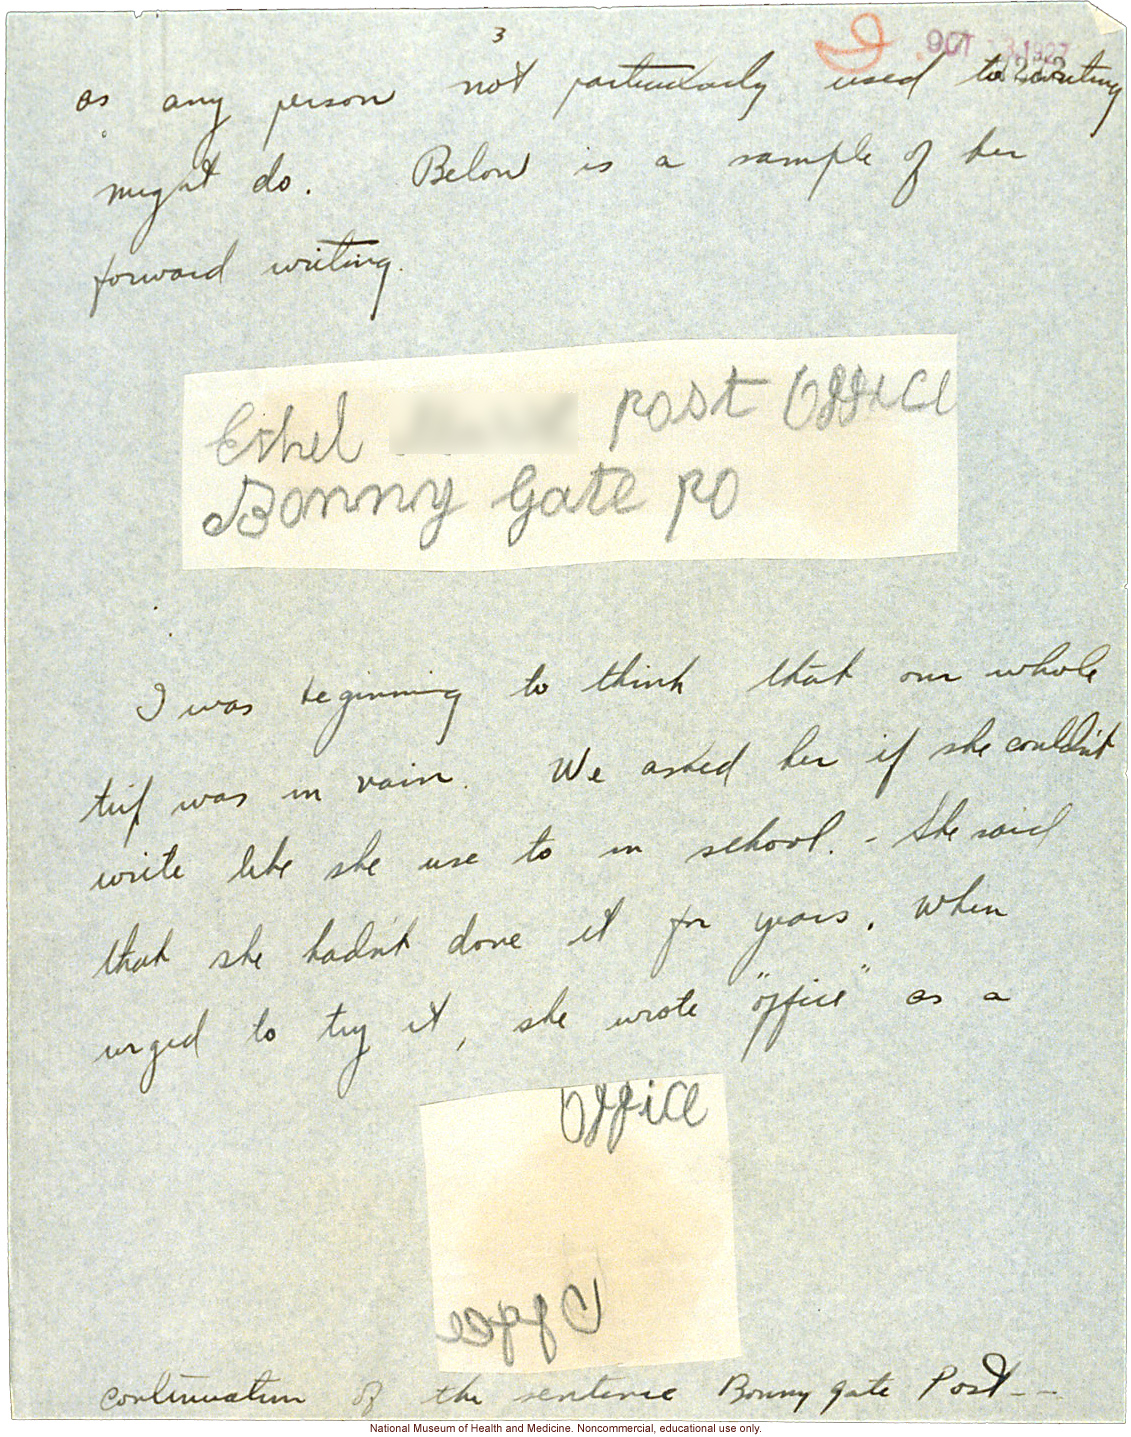 3
OCT 13 1927
as any person not particularly used to writing
might do. Below is a sample of her
forward writing.
Ethel Post Office
Bonny Gate PO
I was beginning to think that our whole
trip was in vain. We asked her if she couldn't
write like she use to in school. - She said
that she hadn't done it for years. When
urged to try it, she wrote "office" as a
Office
Offce
continuation of the sentence Bonny gate Post--
National Museum of Health and Medicine. Noncommercial, educational use only.